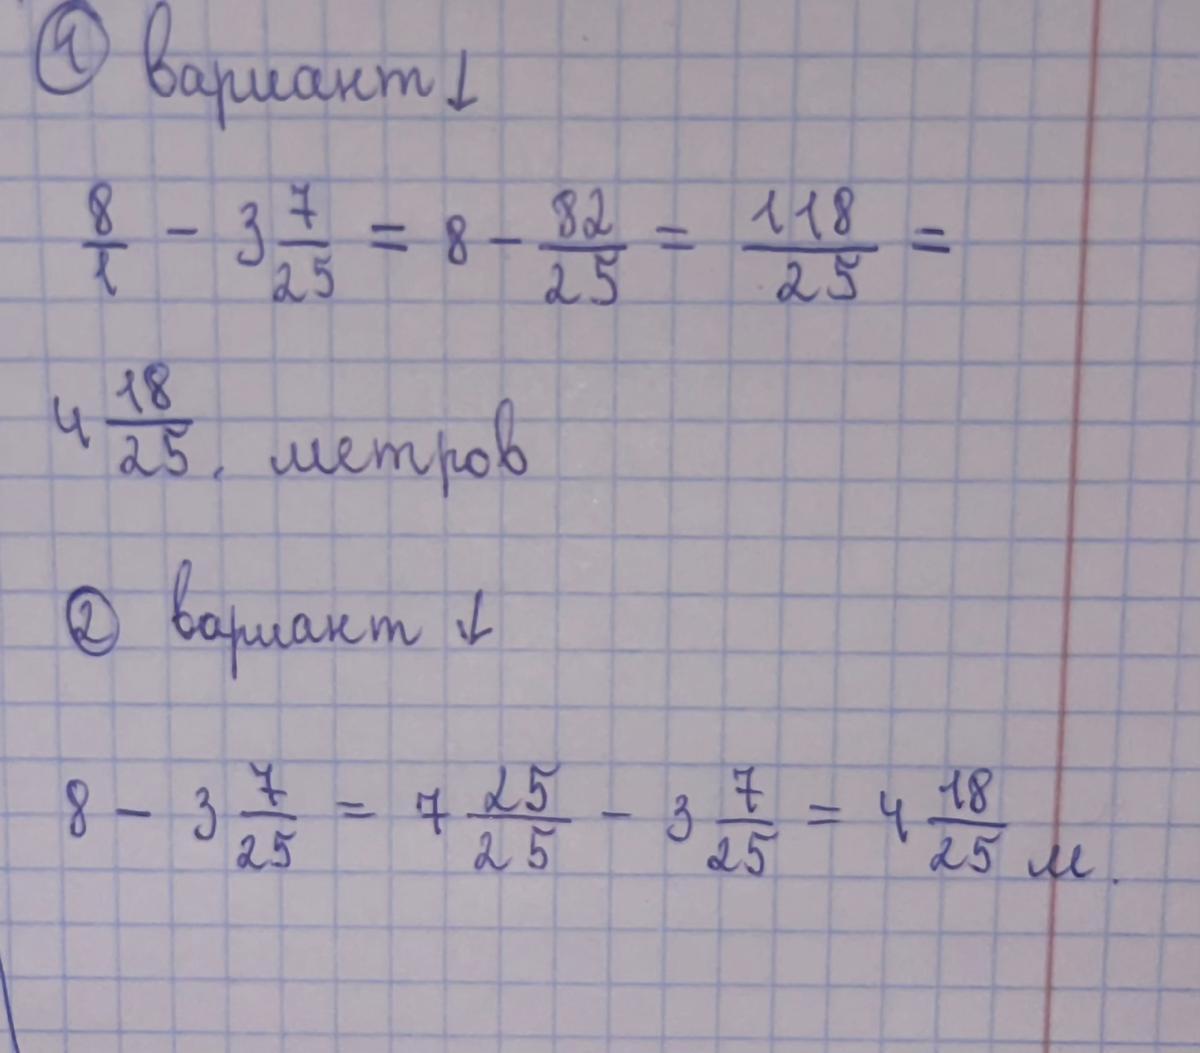 ① вариант ↓
8/1 - 3 7/25 = 8 - 82/25 = 118/25 =
4 18/25. метров
② вариант ↓
8 - 3 7/25 = 7 25/25 - 3 7/25 = 4 18/25 м.